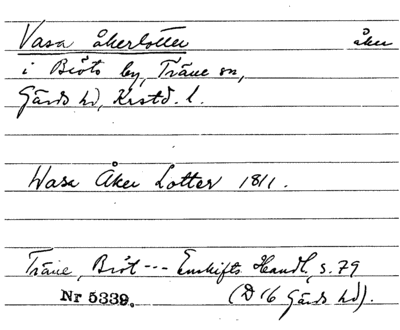 Vasa åkerlotter åker
i Bröts by, Träne sn,
Gärds hd, Krstd. l.
Wasa Åker Lotter 1811.
Träne, Bröt --- Enskifts Handl, s. 79
Nr 5339. (D 16 Gärds hd).